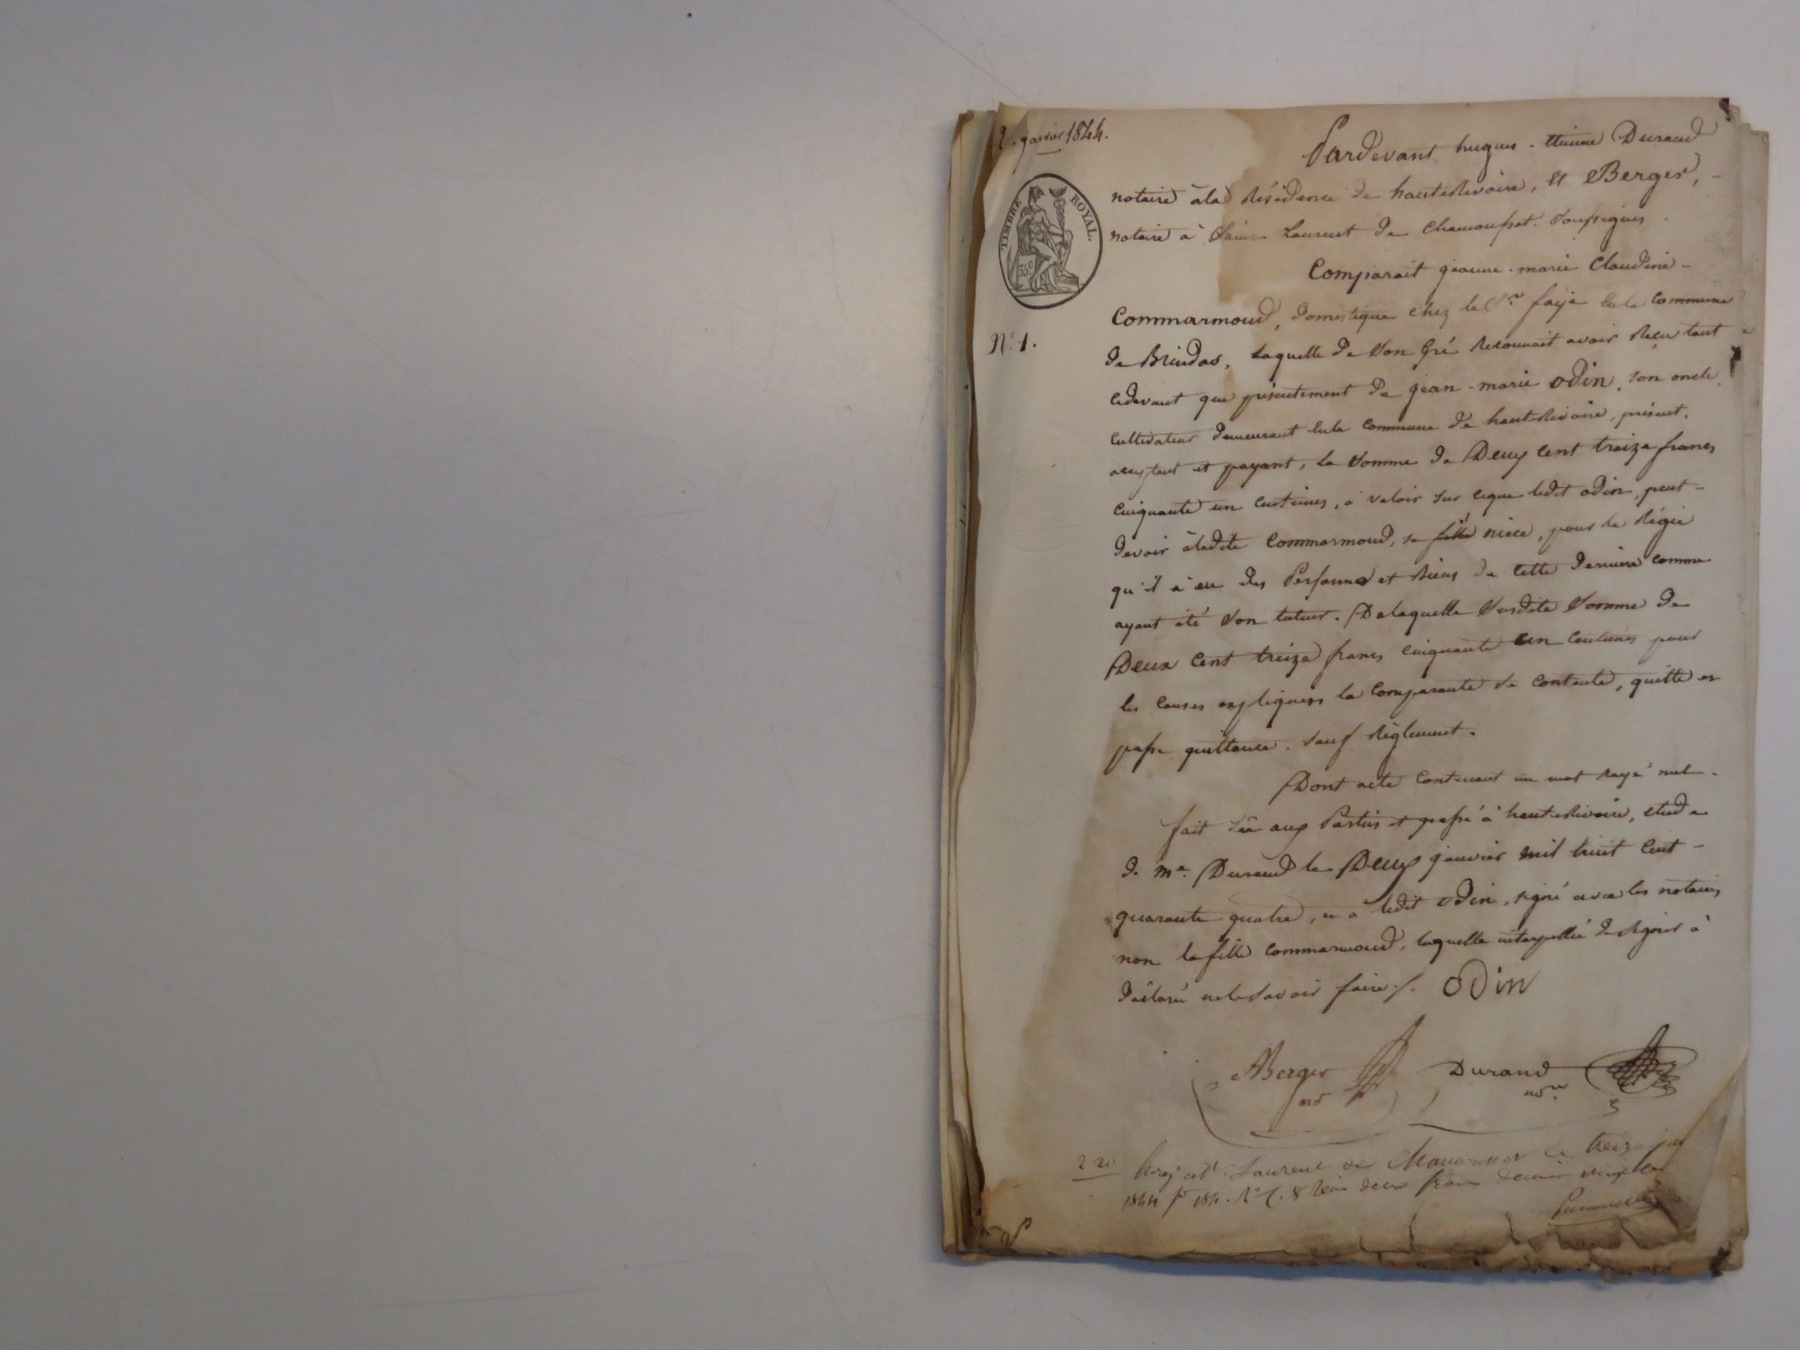 2. janvier 1844.
TIMBRE ROYAL.
35c
N°. 1.
Pardevant hugues - étienne Durand
notaire à la Résidence de hauterivoire, et Berger, -
notaire à Saint Laurent de Chamousset. Soussignés.
Comparait jeanne-marie Claudine -
Commarmond, domestique chez le Sr. faÿe en la commune
de Brindas, laquelle de Son Gré Reconnait avoir Reçu tant
cidevant que présentement de jean-marie odin, son oncle,
cultivateur demeurant en la commune de hauterivoire, présent,
acceptant et payant, la Somme de Deux cent treize francs
cinquante un centimes, à valoir sur ceque ledit odin, peut -
devoir àladite Commarmond, sa fille nièce, pour la Régie
qu'il à eu des Personne et Biens de cette dernière comme
ayant été Son tuteur. De laquelle Susdite Somme de
Deux Cent treize francs cinquante un centimes pour
les causes expliquées la Comparante se contente, quitte et
passe quittance. Sauf Règlement.
Dont acte contenant un mot rayé nul -
fait Lû aux Parties et passé à hauterivoire, etude
de Me. Durand le Deux janvier mil huit cent -
quarante quatre, et à ledit odin, signé avec les notaires
non la fille Commarmond, laquelle interpellée de Signer à
déclaré ne le Savoir faire ./. odin
ABerger
no
Durand
nore
2 20
Enregt. à St. Laurent de Chamousset le treize
1844 fo 184. Ro C. 8 Reçu deux francs decime vingt